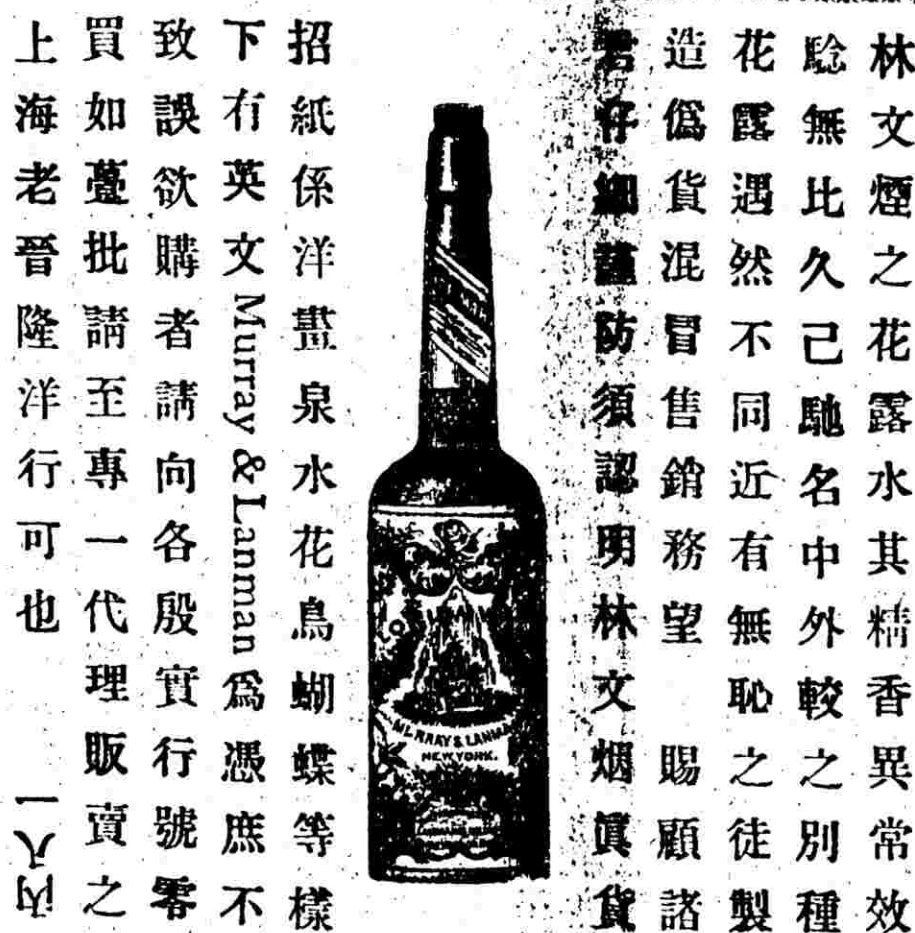 林文煙之花露水其精香異常效
騐無比久己馳名中外較之別種
花露遇然不同近有無恥之徒製
造僞貨混冒售銷務望 賜顧諸
君仔細謹防須認明林文烟眞貨
MURRAY & LANMAN
NEW YORK.
招紙係洋畫泉水花鳥蝴蝶等樣
下有英文 Murray & Lanman 爲憑庶不
致誤欲購者請向各殷實行號零
買如躉批請至專一代理販賣之
上海老晉隆洋行可也